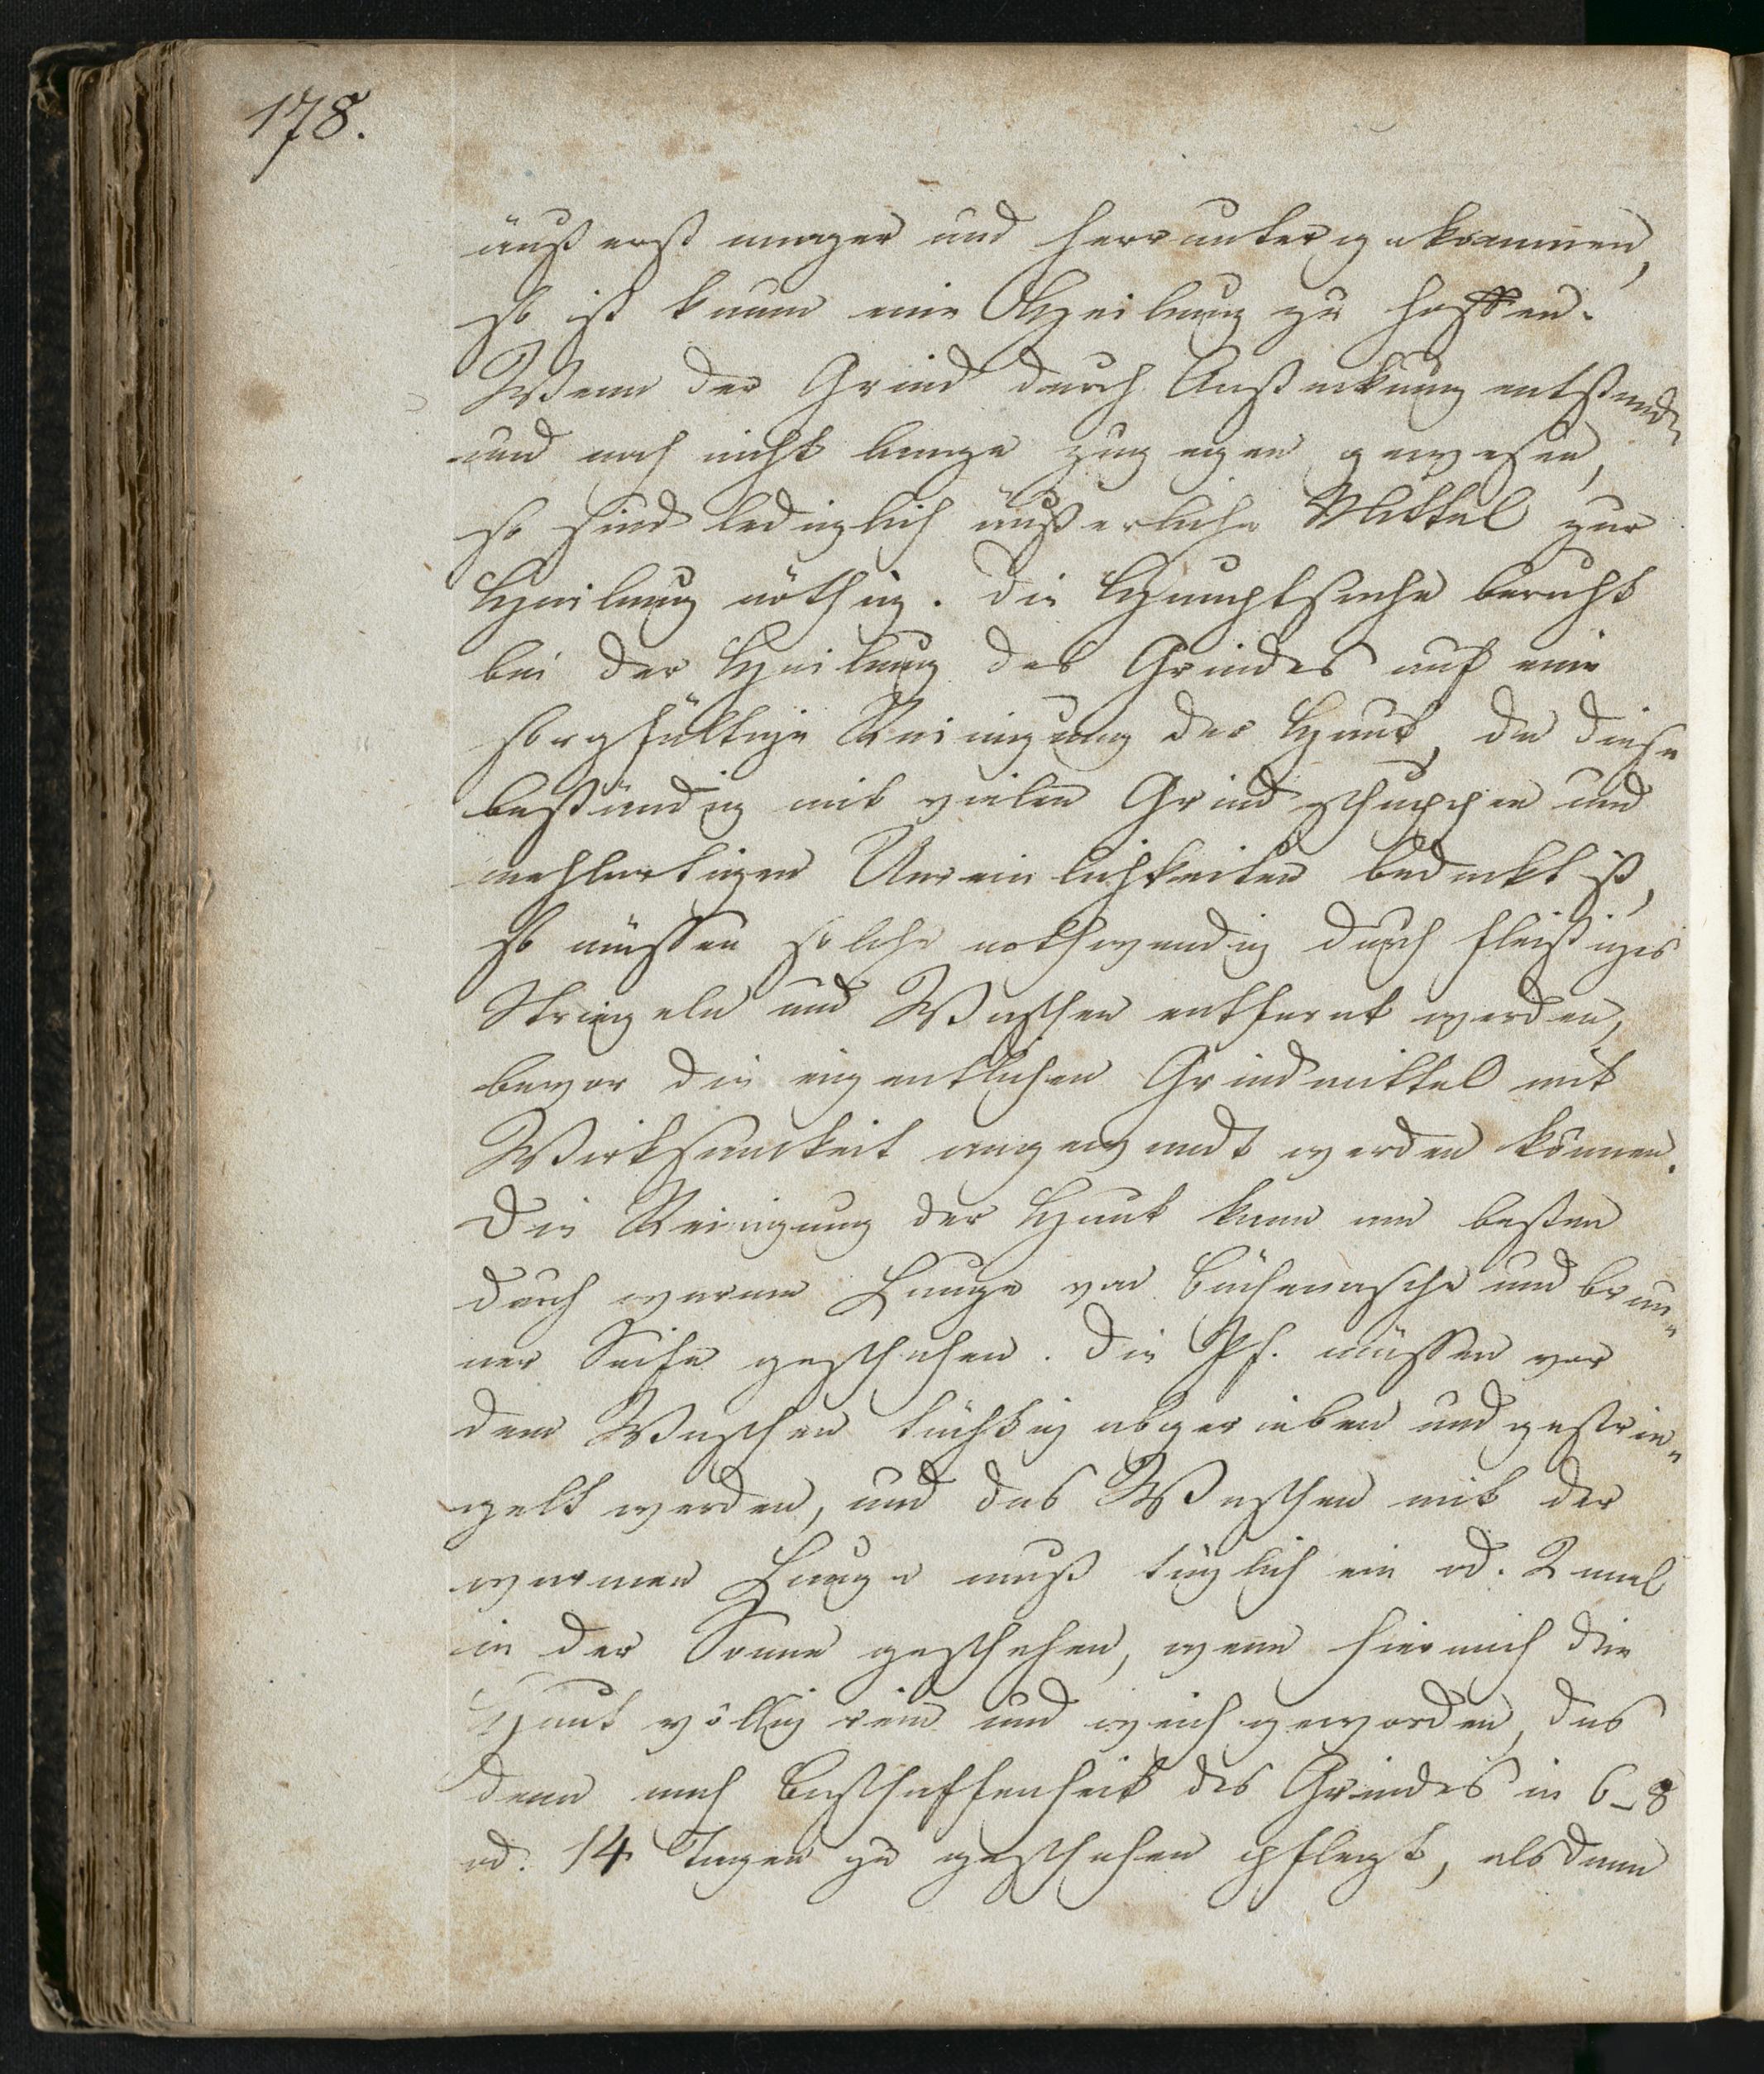 178.
äußerst mager und herruntergekommen,
so ist kaum eine Heilung zu hoffen.
Wenn der Grind durch Ansteckung entstanden
und noch nicht lange zugegen gewesen,
so sind lediglich äußerliche Mittel zur
Heilung nöthig. Die Hauptsache beruht
bei der Heilung des Grindes auf eine
sorgfältige Reinigung der Haut, da diese
beständig mit vielen Grindschuppen und
mehlartigen Unreinlichkeiten bedeckt ist,
so müssen solche nothwendig durch fleißiges
Striegeln und Waschen entfernt werden,
bevor die eigentlichen Grindmittel mit
Wirksamkeit angewandt werden können.
Die Reinigung der Haut kann am besten
durch warme Lauge von Büchenasche und brau„
ner Seife geschehen. Die Pf. müssen vor
dem Waschen tüchtig abgerieben und gestrie„
gelt werden, und das Waschen mit der
warmen Lauge muß täglich ein od. 2 mal
in der Sonne geschehen, wenn hiernach die
Haut völlig rein und weich geworden, das
denn nach Beschaffenheit des Grindes in 6-8
od. 14 Tagen zu geschehen pflegt, alsdann